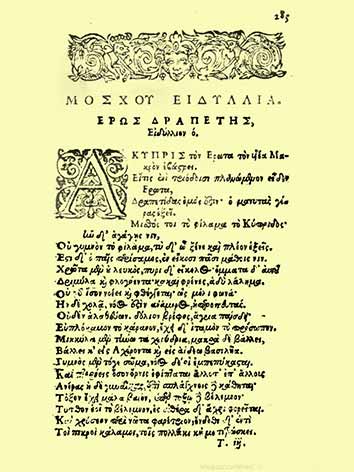 285
ΜΟΣΧΟΥ ΕΙΔΥΛΛΙΑ.
ΕΡΩΣ ΔΡΑΠΕΤΗΣ,
Εἰδύλλιον ά.
Α ΚΥΠΡΙΣ τὸν Ερωτα τὸν υἱέα Μακρὸν ἐβώστρει.
Εἴτις ἐνὶ τριόδοισι πλανώμενον εἶδεν
Ερωτα,
Δραπετίδας ἐμός ἐστιν· ὁ μανυτὰς γέρας ἑξεῖ.
Μισθός τοι τὸ φίλαμα τὸ Κύπριδος·
ἢν δ' ἀγάγῃς νιν,
Οὐ γυμνὸν τὸ φίλαμα, τὺ δ' ὦ ξεῖνε καὶ πλέον ἑξεῖς.
Εστι δ' ὁ παῖς περίσαμος, ἐν εἴκοσι πᾶσι μάθοις νιν.
Χρῶτα μὲν λευκὸς, πυρὶ δ' εἴκελος· ὄμματα δ' αὐτῷ
Δριμύλα καὶ φλογόεντα· κακαὶ φρένες, ἁδὺ λάλημα.
Οὐ γὰρ ἴσον νοέει καὶ φθέγγεται· ὡς μέλι φωνά·
Ην δὲ χολᾷ, νόος ἐστὶν ἀνάμερος, ἠπεροπευτὰς,
Οὐδὲν ἀλαθεύων, δόλιον βρέφος, ἄγρια παίσδει.
Εὐπλόκαμον τὸ κάρανον, ἔχει δ' ἰταμὸν τὸ πρόσωπον.
Μικκύλα μὲν τήνω τὰ χερύδρια, μακρὰ δὲ βάλλει,
Βάλλει κ' εἰς Αχέροντα καὶ εἰς ἀίδεω βασίλεια.
Γυμνὸς μὲν τόγε σῶμα, νόος δέ οἱ ἐμπεπύκασται.
Καὶ πτερόεις ὅσον ὄρνις ἐφίπταται ἄλλοτ' ἐπ' ἄλλοις
Ανέρας ἠδὲ γυναῖκας, ἐπὶ σπλάγχνοις δὲ κάθηται.
Τόξον ἔχει μάλα βαιὸν, ὑπὲρ τόξω δὲ βέλεμνον·
Τυτθὸν ἑοῖ τὸ βέλεμνον, ἐς αἰθέρα δ' ἄχρι φορεῖται.
Καὶ χρύσεον περὶ νῶτα φαρέτριον, ἔνδοθι δ' ἐντὶ
Τοὶ πικροὶ κάλαμοι, τοῖς πολλάκι κἠμὲ τιτρώσκει.
T. iij.